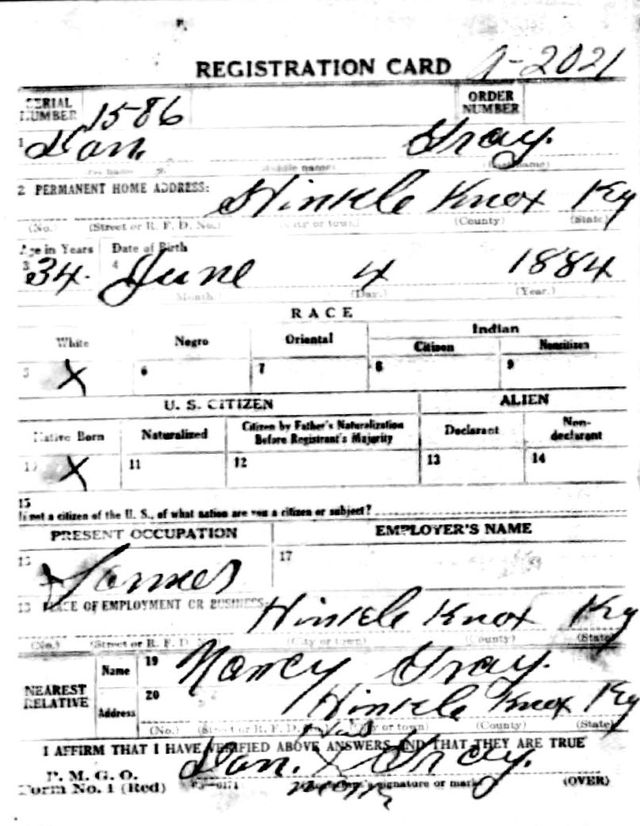 REGISTRATION CARD A-2021
SERIAL NUMBER 1586 ORDER NUMBER
1 Dan. Gray.
2 PERMANENT HOME ADDRESS: Hinkle Knox Ky
(No.) (Street or R. F. D. No.) (City or town) (County) (State)
Age in Years Date of Birth
3 34. 4 June 4 1884
(Month.) (Day.) (Year.)
RACE
White Negro Oriental Indian
Citizen Noncitizen
5 X 6 7 8 9
U. S. CITIZEN ALIEN
Native Born Naturalized Citizen by Father's Naturalization Before Registrant's Majority Declarant Non-declarant
10 X 11 12 13 14
15
If not a citizen of the U. S., of what nation are you a citizen or subject?
PRESENT OCCUPATION EMPLOYER'S NAME
16 17
18 PLACE OF EMPLOYMENT OR BUSINESS: Hinkle Knox Ky
(No.) (Street or R. F. D. No.) (City or town) (County) (State)
NEAREST RELATIVE Name 19 Nancy Gray.
Address 20 Hinkle Knox Ky
(No.) (Street or R. F. D. No.) (City or town) (County) (State)
I AFFIRM THAT I HAVE VERIFIED ABOVE ANSWERS AND THAT THEY ARE TRUE
P. M. G. O.
Form No. 1 (Red) Dan. His X mark Gray.
(Registrant's signature or mark) (OVER)